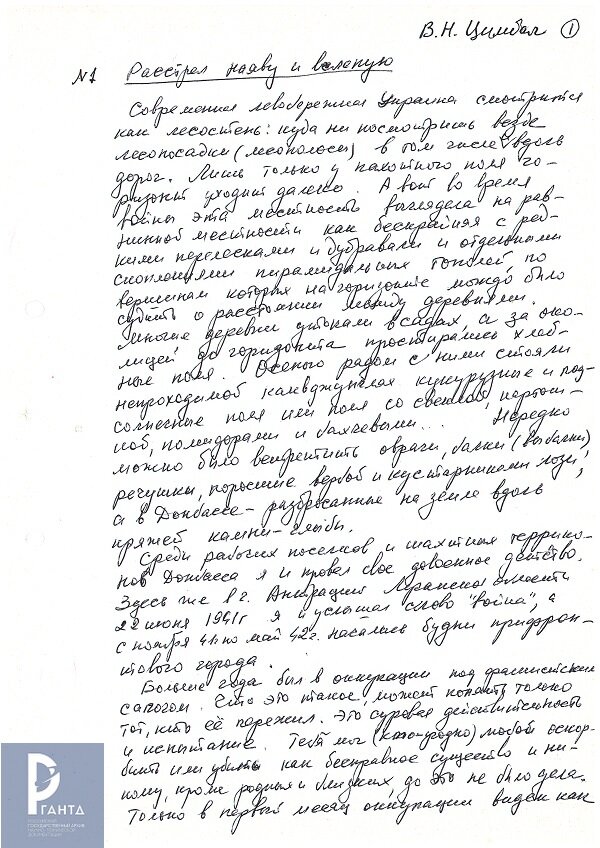 В.Н. Цимбал 1
№1 Расстрел наяву и вслепую
Современная левобережная Украина смотрится
как лесостепь: куда ни посмотришь везде
лесопосадки (лесополосы) в том числе вдоль
дорог. Лишь только у пахотного поля го-
ризонт уходит далеко. А вот во время
войны эта местность выглядела на рав-
нинной местности как бескрайняя с ред-
кими перелесками и дубравами и отдельными
скоплениями пирамидальных тополей, по
вершинам которых на горизонте можно было
судить о расстоянии между деревнями.
Многие деревни утопали в садах, а за око-
лицей до горизонта простирались хлеб-
ные поля. Осенью рядом с ними стояли
непроходимой кукурузные и под-
солнечные поля или поля со свеклой, картош-
кой, помидорами и бахчевыми... Нередко
можно было встретить овраги, балки
речушки, поросшие вербой и кустарниками лозы,
а в Донбассе - разбросанные на земле вдоль
кряжей камни-глыбы.
Среди рабочих поселков и шахтных террико-
нов Донбасса я и провел свое довоенное детство.
Здесь же в г. Антрацит Луганской области
22 июня 1941г я и услышал слово "война", а
с ноября 41 по май 42г. начались будни прифрон-
тового города.
Больше года был в оккупации под фашистским
сапогом. Что это такое, может понять только
тот, кто её пережил. Это суровая действительность
и испытание. Тебя мог (кто-угодно) любой оскор-
бить или убить как бесправное существо и ни-
кому, кроме родных и близких, до это не было дела.
Только в первый месяц оккупации видел как
РГАНТД
РОССИЙСКИЙ
ГОСУДАРСТВЕННЫЙ АРХИВ
НАУЧНО-ТЕХНИЧЕСКОЙ
ДОКУМЕНТАЦИИ